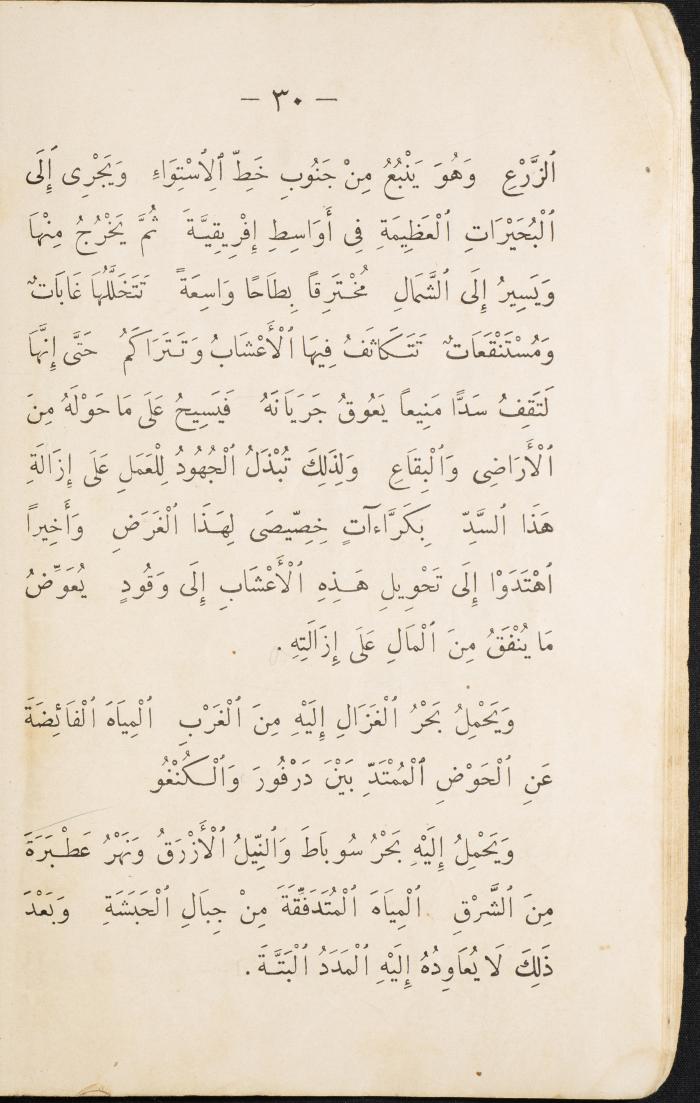 — ٣٠ —
ٱلزَّرْعِ وَهُوَ يَنْبُعُ مِنْ جَنُوبِ خَطِّ ٱلِٱسْتِوَاءِ وَيَجْرِى إِلَى
ٱلْبُحَيْرَاتِ ٱلْعَظِيمَةِ فِى أَوَاسِطِ إِفْرِيقِيَّةَ ثُمَّ يَخْرُجُ مِنْهَا
وَيَسِيرُ إِلَى ٱلشَّمَالِ مُخْتَرِقاً بِطَاحًا وَاسِعَةً تَتَخَلَّلُهَا غَابَاتٌ
وَمُسْتَنْقَعَاتٌ تَتَكَاثَفُ فِيهَا ٱلْأَعْشَابُ وَتَتَرَاكَمُ حَتَّى إِنَّهَا
لَتَقِفُ سَدًّا مَنِيعاً يَعُوقُ جَرَيَانَهُ فَيَسِيحُ عَلَى مَا حَوْلَهُ مِنَ
ٱلْأَرَاضِى وَٱلْبِقَاعِ وَلِذَلِكَ تُبْذَلُ ٱلْجُهُودُ لِلْعَمَلِ عَلَى إِزَالَةِ
هَذَا ٱلسَّدِّ بِكَرَّاءآتٍ خِصِّيصَى لِهَذَا ٱلْغَرَضِ وَأَخِيراً
ٱهْتَدَوْا إِلَى تَحْوِيلِ هَذِهِ ٱلْأَعْشَابِ إِلَى وَقُودٍ يُعَوِّضُ
مَا يُنْفَقُ مِنَ ٱلْمَالِ عَلَى إِزَالَتِهِ .
وَيَحْمِلُ بَحْرُ ٱلْغَزَالِ إِلَيْهِ مِنَ ٱلْغَرْبِ ٱلْمِيَاهَ ٱلْفَائِضَةَ
عَنِ ٱلْحَوْضِ ٱلْمُمْتَدِّ بَيْنَ دَرْفُورَ وَٱلْكُنْغُو
وَيَحْمِلُ إِلَيْهِ بَحْرُ سُوبَاطَ وَٱلنِّيلُ ٱلْأَزْرَقُ وَنَهْرُ عَطْبَرَةَ
مِنَ ٱلشَّرْقِ ٱلْمِيَاهَ ٱلْمُتَدَفِّقَةَ مِنْ جِبَالِ ٱلْحَبَشَةِ وَبَعْدَ
ذَلِكَ لَا يُعَاوِدُهُ إِلَيْهِ ٱلْمَدَدُ ٱلْبَتَّةَ .